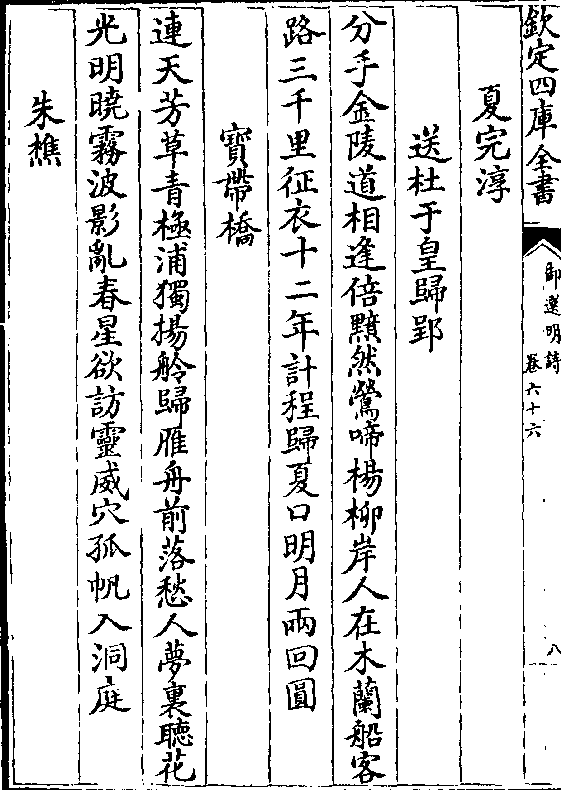 欽定四庫全書
御選明詩
卷六十六
八
夏完淳
送杜于皇歸郢
分手金陵道相逢倍黯然鶯啼楊柳岸人在木蘭船客
路三千里征衣十二年計程歸夏口明月兩回圓
寳帶橋
連天芳草青極浦獨揚舲歸雁舟前落愁人夢裏聽花
光明曉霧波影亂春星欲訪靈威穴孤帆入洞庭
朱樵